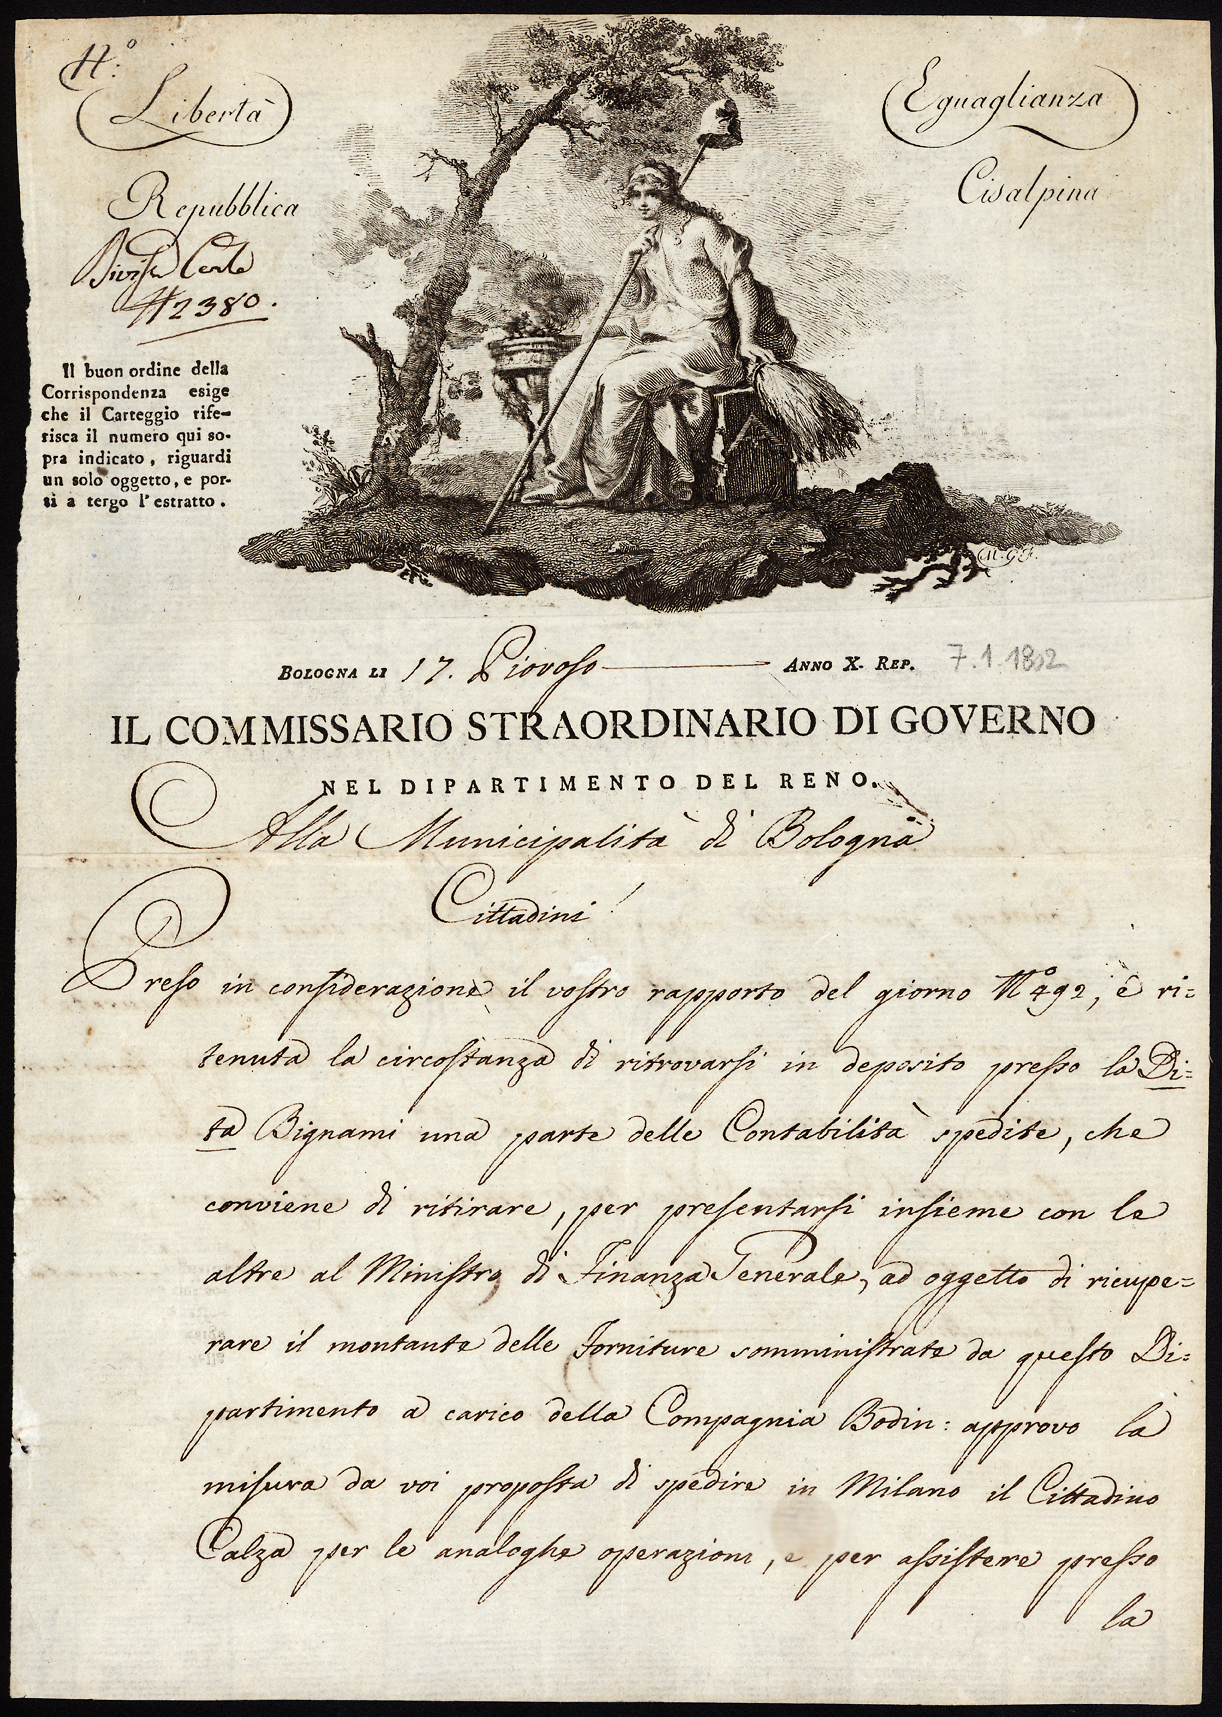 N.º
Libertà
Eguaglianza
Repubblica
Cisalpina
№2380.
Il buon ordine della
Corrispondenza esige
che il Carteggio rife-
risca il numero qui so-
pra indicato, riguardi
un solo oggetto, e por-
ti a tergo l'estratto.
M. G. F.
BOLOGNA LI 17. Piovoso ANNO X. REP. 7.1.1802
IL COMMISSARIO STRAORDINARIO DI GOVERNO
NEL DIPARTIMENTO DEL RENO.
Alla Municipalità di Bologna
Cittadini!
Preso in considerazione il vostro rapporto del giorno Nº 492, e ri=
tenuta la circostanza di ritrovarsi in deposito presso la Di=
ta Bignami una parte delle Contabilità spedite, che
conviene di ritirare, per presentarsi insieme con le
altre al Ministro di Finanza Generale, ad oggetto di ricupe=
rare il montante delle Forniture somministrate da questo Di=
partimento a carico della Compagnia Bodin: approvo la
misura da voi proposta di spedire in Milano il Cittadino
Calza per le analoghe operazioni, e per assistere presso
la